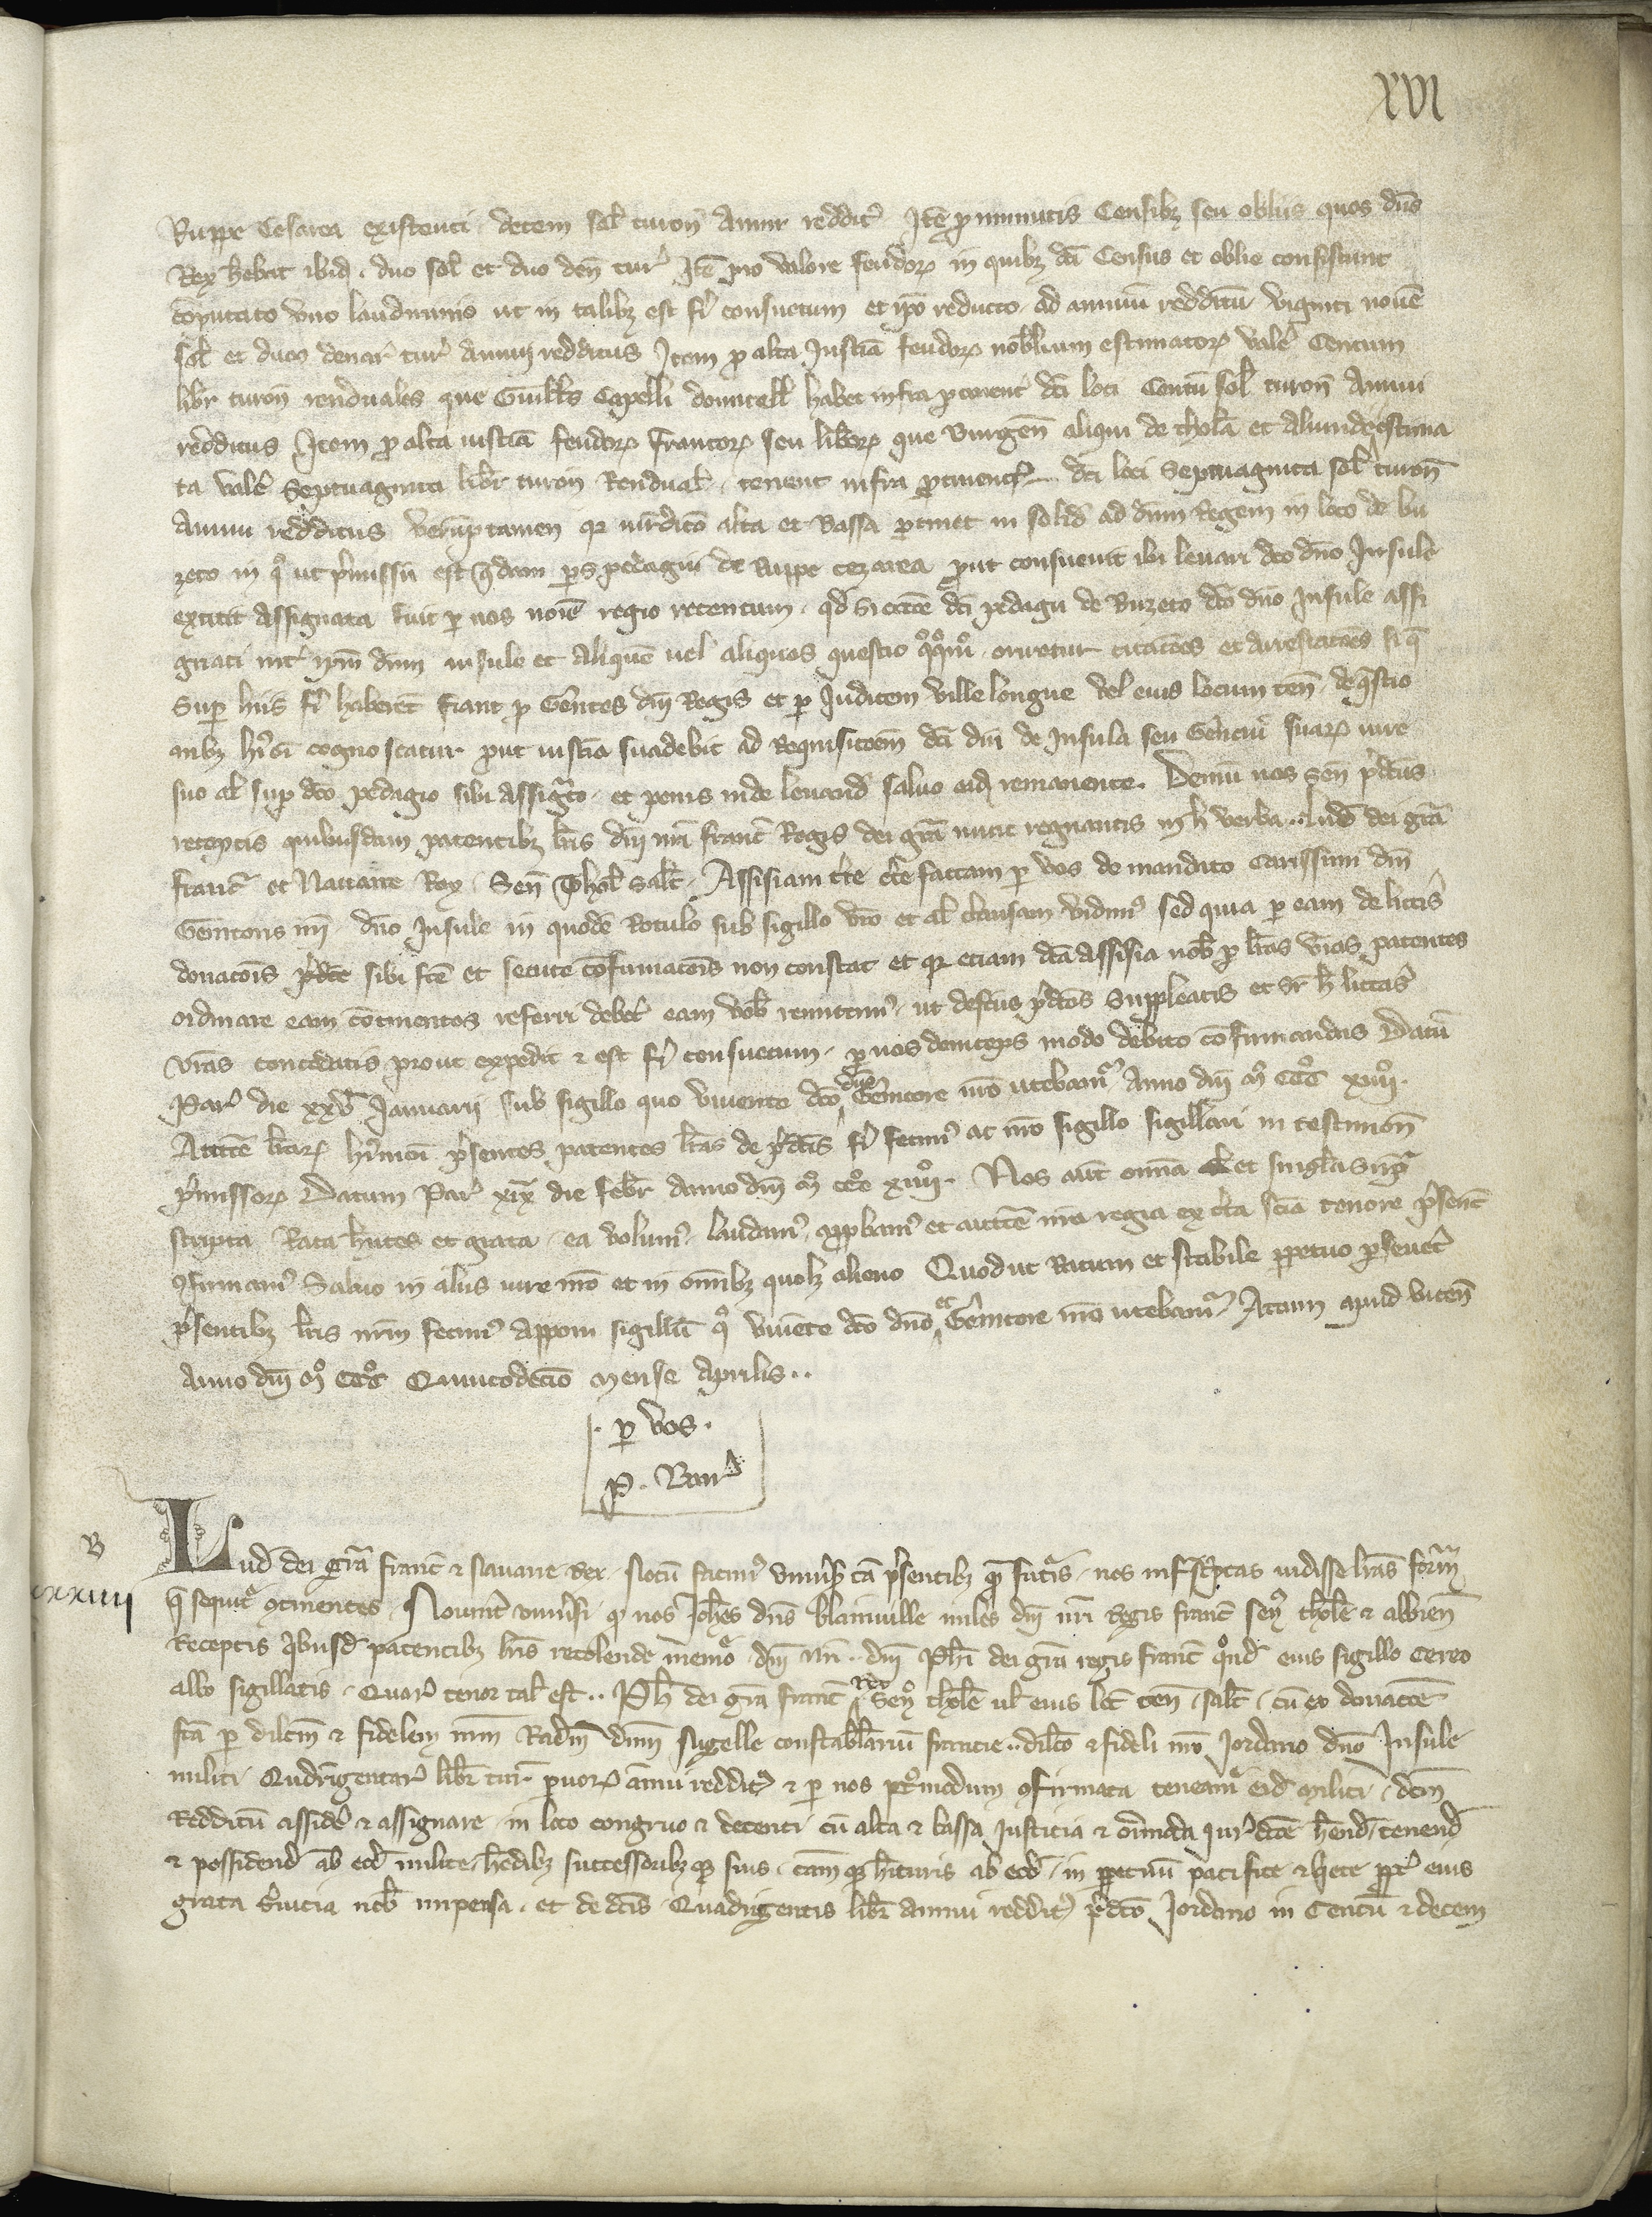 XVI
Ruppe Cesarea existenti decem sol turon annui reddit Itē pro minutis Censibȝ seu obliis quos dn̄s
Rex h̄ebat ibid. duo sol et duo den̄ tur Itē pro valore feudorꝝ in quibȝ dc̄i Census et oblie consistunt
cōputato vno laudimio ut in talibȝ est fi consuetum et ip̄o reducto ad annuū redditū viginti nouē
sol et duos denar tur annui redditus Item ꝓ alta Justic̄ia feudorꝝ nobilium estimatorꝝ valē Centum
libr turon̄ renduales que Guill̄s Capelli domicell̄ habet infra pertinent dc̄i loci Centū sol turon̄ Annui
redditus Item ꝓ alta iustic̄ia feudorꝝ francorꝝ seu liberorꝝ que Burgen̄ aliqui de thola et aliunde estima
ta valē Septuaginta libr turon̄ Rendual tenent infra ꝑtinent dc̄i loci Septuaginta sol turon̄
Annui redditus verūptamen qꝛ iurdicō alta et Bassa ꝑtinet in solid ad dn̄m Regem in loco de bu
zeto in qͦ ut p̄missū est qd̄am pars pedagii de Ruppe cezarea ꝓut consueuit ibi leuari dc̄o dn̄o Insule
extitit Assignata fuit ꝑ nos noīe regio retentum qd̄ si rōne dc̄i pedagii de Buzeto dc̄o dn̄o Insule assi
gnati int ip̄m dn̄m insule et aliquē uel aliquos questio oriretur citacōes et arrestacōes si q̄
Sup hiis fi haberēt fiant ꝑ Gentes dn̄i Regis et ꝑ Judicem ville longue vel eius locum ten̄ de q̄stio
nibȝ hi̾oi cognoscatur ꝓut iustic̄ia suadebit ad Requisitōem dc̄i dn̄i de Insula seu Genciū suarꝝ iure
suo al sup dc̄o pedagio sibi Assignato et penis inde leuand saluo eid remanente. Demū nos Sen̄ p̄dc̄us
receptis quibusdam patentibȝ lr̄is dn̄i nr̄i franc̄ Regis dei gr̄a nunc regnantis in h̄ verba Lud dei gr̄a
franc̄ et Nauarre Rex Sen̄ Thol̄ salt. Assisiam terre factam ꝑ vos de mandato carissimi dn̄i
Genitoris nr̄i dn̄o Insule in quodā Rotulo sub sigillo vr̄o et al clausam vidimꝰ sed quia ꝑ eam de litt̄is
donacōis p̄dc̄e sibi fc̄e et secute cōfirmacōis non constat et qꝛ etiam dc̄a Assisia nob ꝑ lr̄as vr̄as patentes
ordinare eam cōtinentes referri debet eam vob remittimꝰ ut defectus p̄dc̄os Suppleatis et sr̄ h̄ litt̄as
vr̄as concedatis prout expedit ⁊ est fi consuetum ꝑ nos deinceps modo debito cōfirmandas Datū
Par die xxv Januarii sub sigillo quo viuente dc̄o dn̄o Genitore nr̄o utebamꝰ Anno dn̄i Mͦ CCCͦ xiiiiͦ.
Auctē lr̄arꝝ hi̾moi p̄sentes patentes lr̄as de p̄dc̄is fi fecimꝰ ac nr̄o sigillo sigillari in testimon̄
p̄missorꝝ Datum Par xix die febr anno dn̄i Mͦ CCCͦ xiiiiͦ. Nos aūt om̄ia et singula supra
scripta Rata h̄ntes et grata ea volumꝰ laudamꝰ approbamꝰ et auctē nr̄a regia ex certa sc̄ia tenore p̄senc̄
ꝯfirmamꝰ Saluo in aliis iure nr̄o et in om̄ibȝ quolȝ alieno Quod ut Ratum et stabile ꝑpetuo ꝑseueret
p̄sentibȝ lr̄is nr̄m fecimꝰ apponi sigillū qͦ viuente dc̄o dn̄o et Genitore nr̄o utebamꝰ Actum apud vicen̄
Anno dn̄i Mͦ CCCͦ Quintodecīo mense Aprilis..
. ꝑ vos.
P. Barr
B
xxxiiii
Lud dei gr̄a franc̄ ⁊ Nauarre Rex. Notū facimꝰ vniusis tā p̄sentibȝ qͣ futīs nos infrascptas vidisse lr̄as formā
q̄ sequit ꝯtinentes. Nouint vniusi qͥ nos Joh̄es dn̄s blainuille miles dn̄i nr̄i Regis franc̄ sen̄ thol̄e ⁊ albien̄
Receptis qibusd patentibȝ lr̄is recolende memoͥe dn̄i nr̄i.. dn̄i Ph̄i dei gr̄a regis franc̄ qͦnd eius sigillo cereo
albo sigillatis. Quarꝝ tenor tal est.. Ph̄ dei gr̄a franc̄ Rex Sen̄ thol̄e ul eius loc̄ ten̄ salt. cū ex donacōe
fc̄a ꝑ dilc̄m ⁊ fidelem nr̄m Radm̄ dn̄m Nigelle constabl̄ariū francie.. dilc̄o ⁊ fideli nr̄o Jordano dn̄o Insule
militi Qudringentarꝝ libr tur paruorꝝ annui reddit ⁊ ꝑ nos postmodum ꝯfirmata teneamꝰ eid militi dc̄m
Redditū assidē ⁊ assignare in loco congruo ⁊ decenti cū alta ⁊ bassa Justicia ⁊ om̄oda Jurdicōe h̄end tenend
⁊ possidend ab eod milite h̄edibȝ successoribȝqꝫ suis tam qͣ h̄ituris ab eod in ꝑpetuū pacifice ⁊ qete ꝓpt eius
grata suicia nob impensa. et de dc̄is Quadringentis libr annui reddit p̄dc̄o Jordano in Centū ⁊ decem